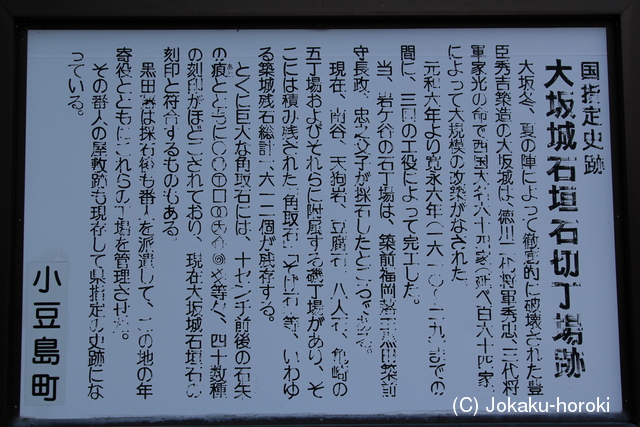 国指定史跡
大坂城石垣石切丁場跡
大坂冬、夏の陣によって徹底的に破壊された豊
臣秀吉築造の大坂城は、徳川二代将軍秀忠、三代将
軍家光の命で西国大名六十四家(延べ百六十四家
によって大規模の改築がなされた
元和六年より寛永六年(一六二〇〜二九)までの
間に、三回の工役によって完工した。
当、岩ケ谷の石丁場は、筑前福岡藩主黒田筑前
守長政、忠之父子が採石したところである。
現在、南谷、天狗岩、豆腐石、八人石、亀崎の
五丁場およびそれらに附属する磯丁場があり、そ
こには積み残された「角取石」「そげ石」等、いわゆ
る築城残石総計一、六一二個が残存する。
とくに巨大な角取石には、十センチ前後の石矢
の痕とともに 等々、四十数種
の刻印がほどこされており、現在大坂城石垣石の
刻印と符合するものもある。
黒田藩は採石後も番人を派遣して、この地の年
寄役とともにこれらの丁場を管理させた。
その番人の屋敷跡も現存して県指定の史跡にな
っている。
小豆島町
(C) Jokaku-horoki